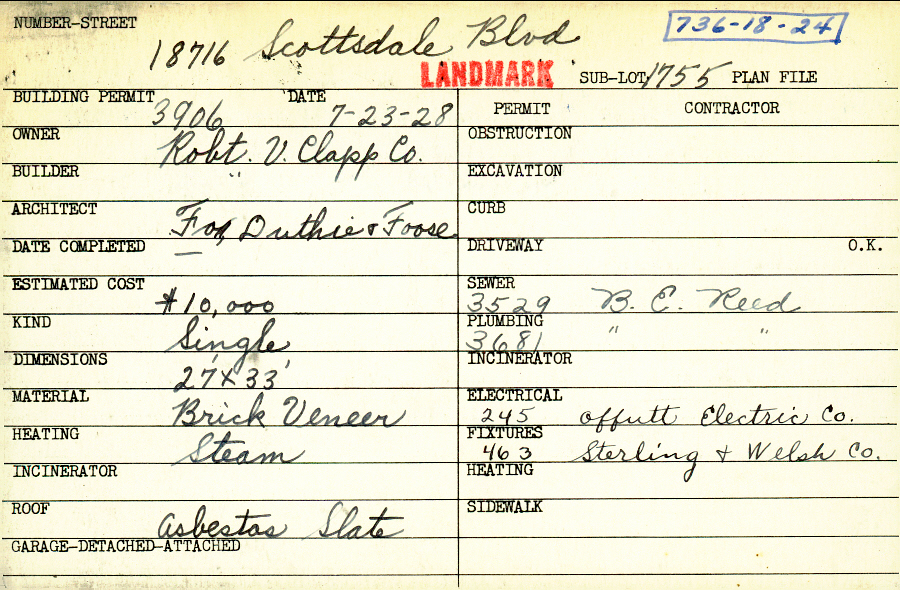 NUMBER-STREET
18716 Scottsdale Blvd
736-18-24
LANDMARK SUB-LOT 1755 PLAN FILE
BUILDING PERMIT 3906 DATE 7-23-28
OWNER Robt. V. Clapp Co.
BUILDER "
ARCHITECT Fox, Duthie & Foose
DATE COMPLETED —
ESTIMATED COST $10,000
KIND Single
DIMENSIONS 27' x 33'
MATERIAL Brick Veneer
HEATING Steam
INCINERATOR
ROOF Asbestos Slate
GARAGE-DETACHED-ATTACHED
PERMIT CONTRACTOR
OBSTRUCTION
EXCAVATION
CURB
DRIVEWAY O.K.
SEWER 3529 B. E. Reed
PLUMBING 3681 " "
INCINERATOR
ELECTRICAL 245 Offutt Electric Co.
FIXTURES 463 Sterling & Welsh Co.
HEATING
SIDEWALK